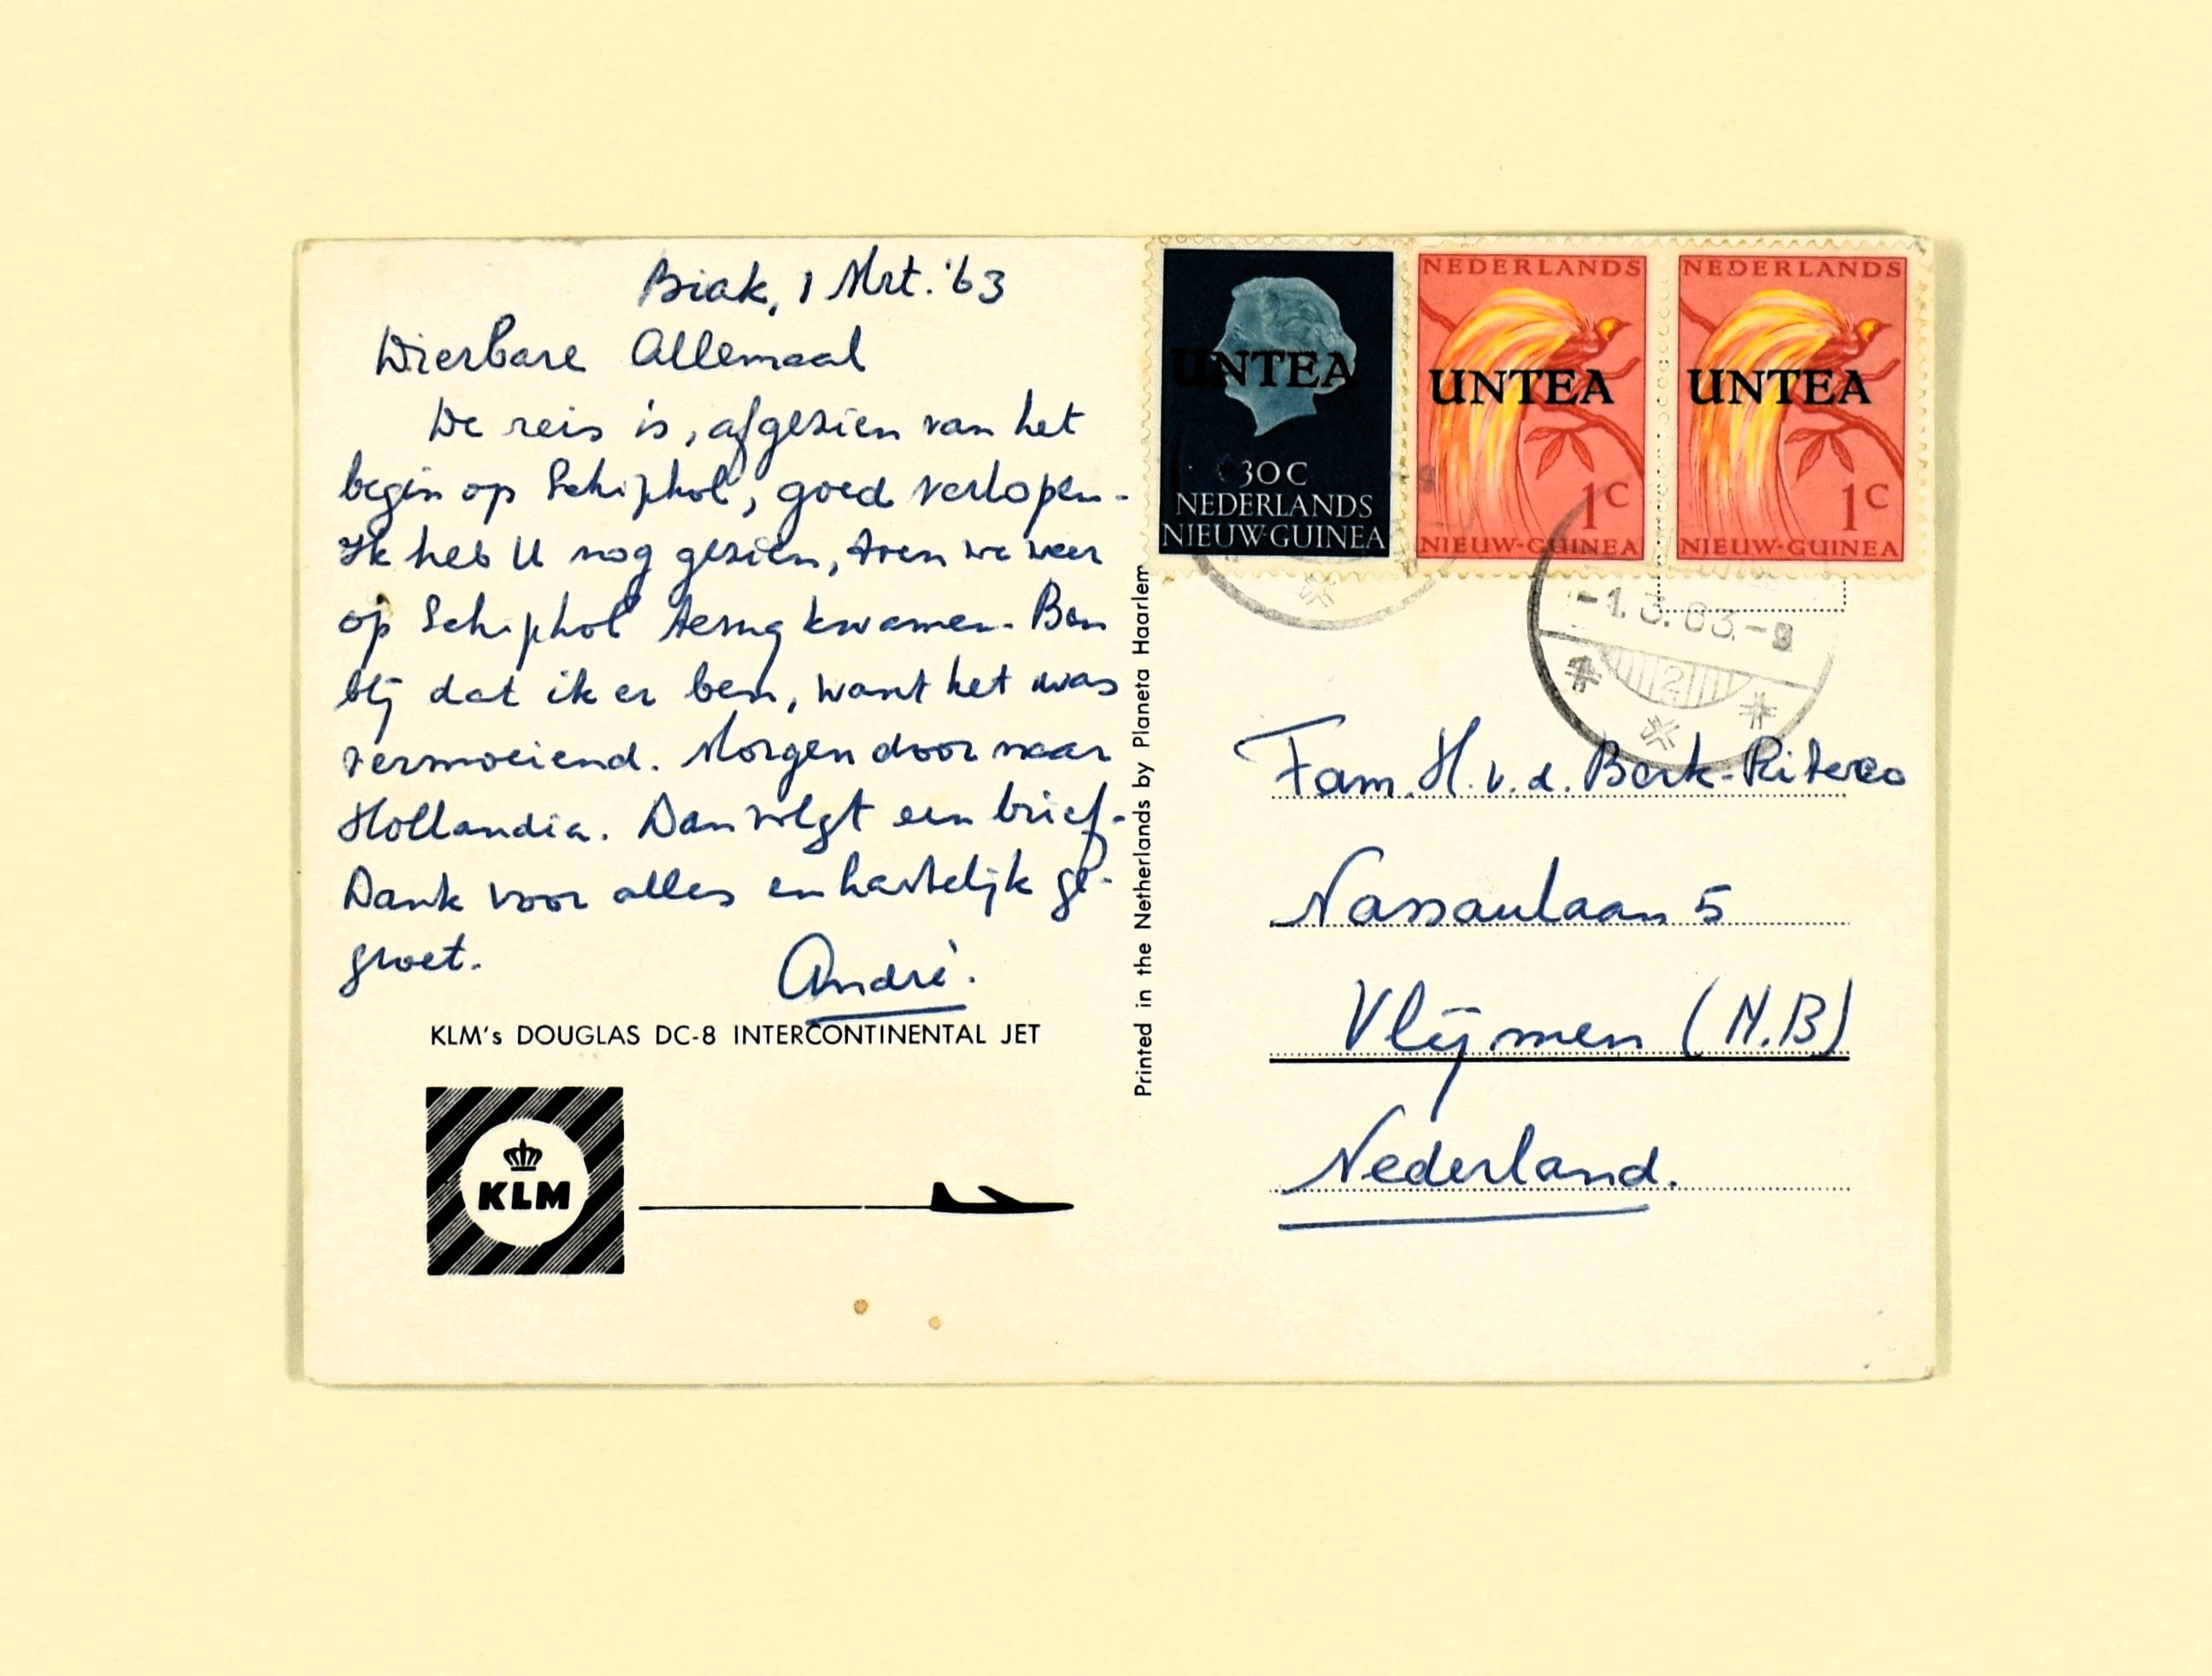 Biak, 1 Mrt. '63
Dierbare Allemaal
De reis is, afgezien van het
begin op Schiphol, goed verlopen.
Ik heb U nog gezien, toen we weer
op Schiphol terug kwamen. Ben
blij dat ik er ben, want het was
vermoeiend. Morgen door naar
Hollandia. Dan volgt een brief.
Dank voor alles en hartelijk ge-
groet.
André.
KLM's DOUGLAS DC-8 INTERCONTINENTAL JET
KLM
Printed in the Netherlands by Planeta Haarlem
UNTEA
30 C
NEDERLANDS
NIEUW-GUINEA
NEDERLANDS
UNTEA
1 C
NIEUW-GUINEA
NEDERLANDS
UNTEA
1 C
NIEUW-GUINEA
-1.3.63.-9
2
Fam. H. v. d. Bork-
Nassaulaan 5
Vlijmen (N.B)
Nederland.